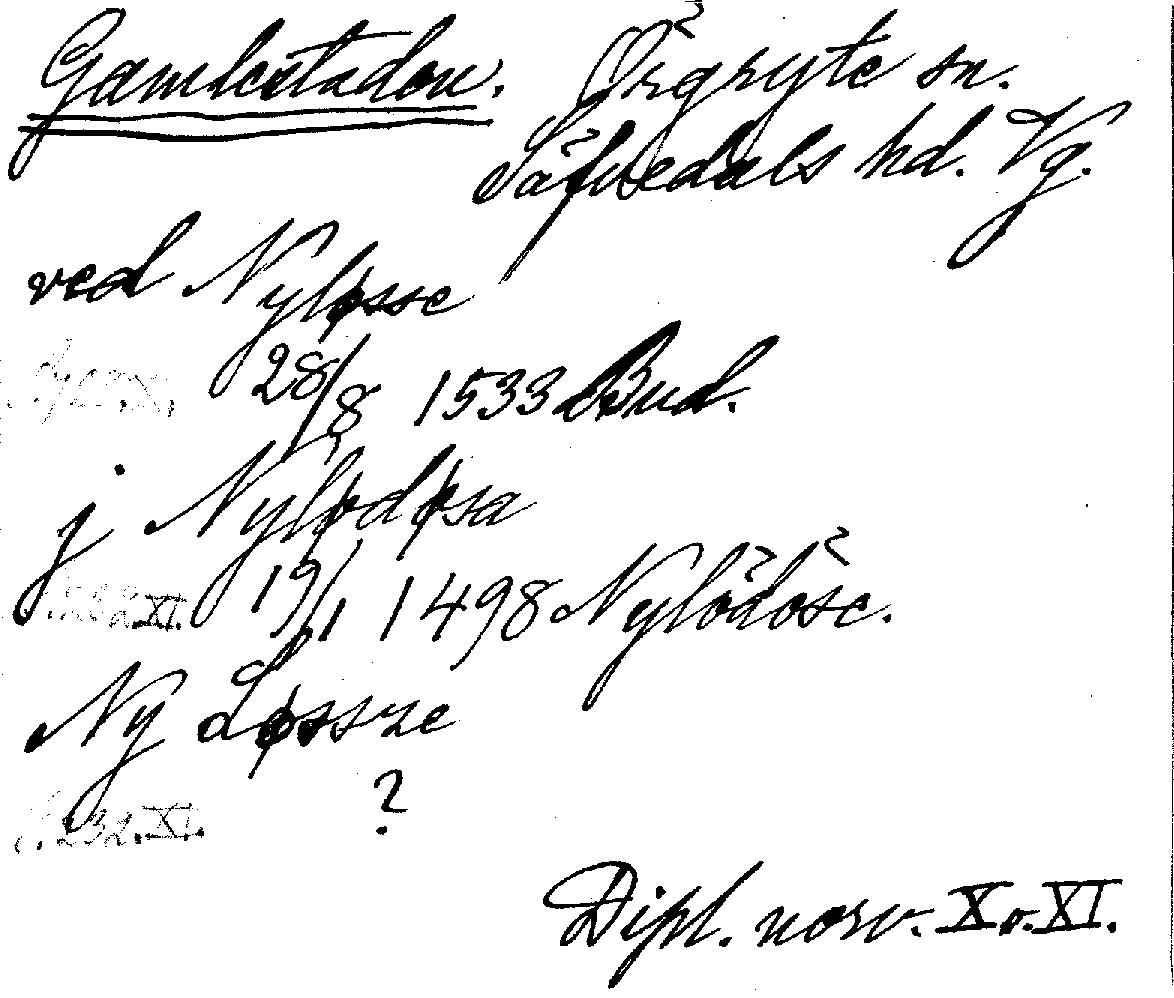 Gamlestaden. Örgryte sn.
Säfvedals hd. Vg.
ved Nyløsse
28/8 1533 Bud.
j Nyłødøsa
XI. 19/1 1498 Nylödöse.
Ny Løssze
S. 232. XI. ?
Dipl. norv. X o. XI.